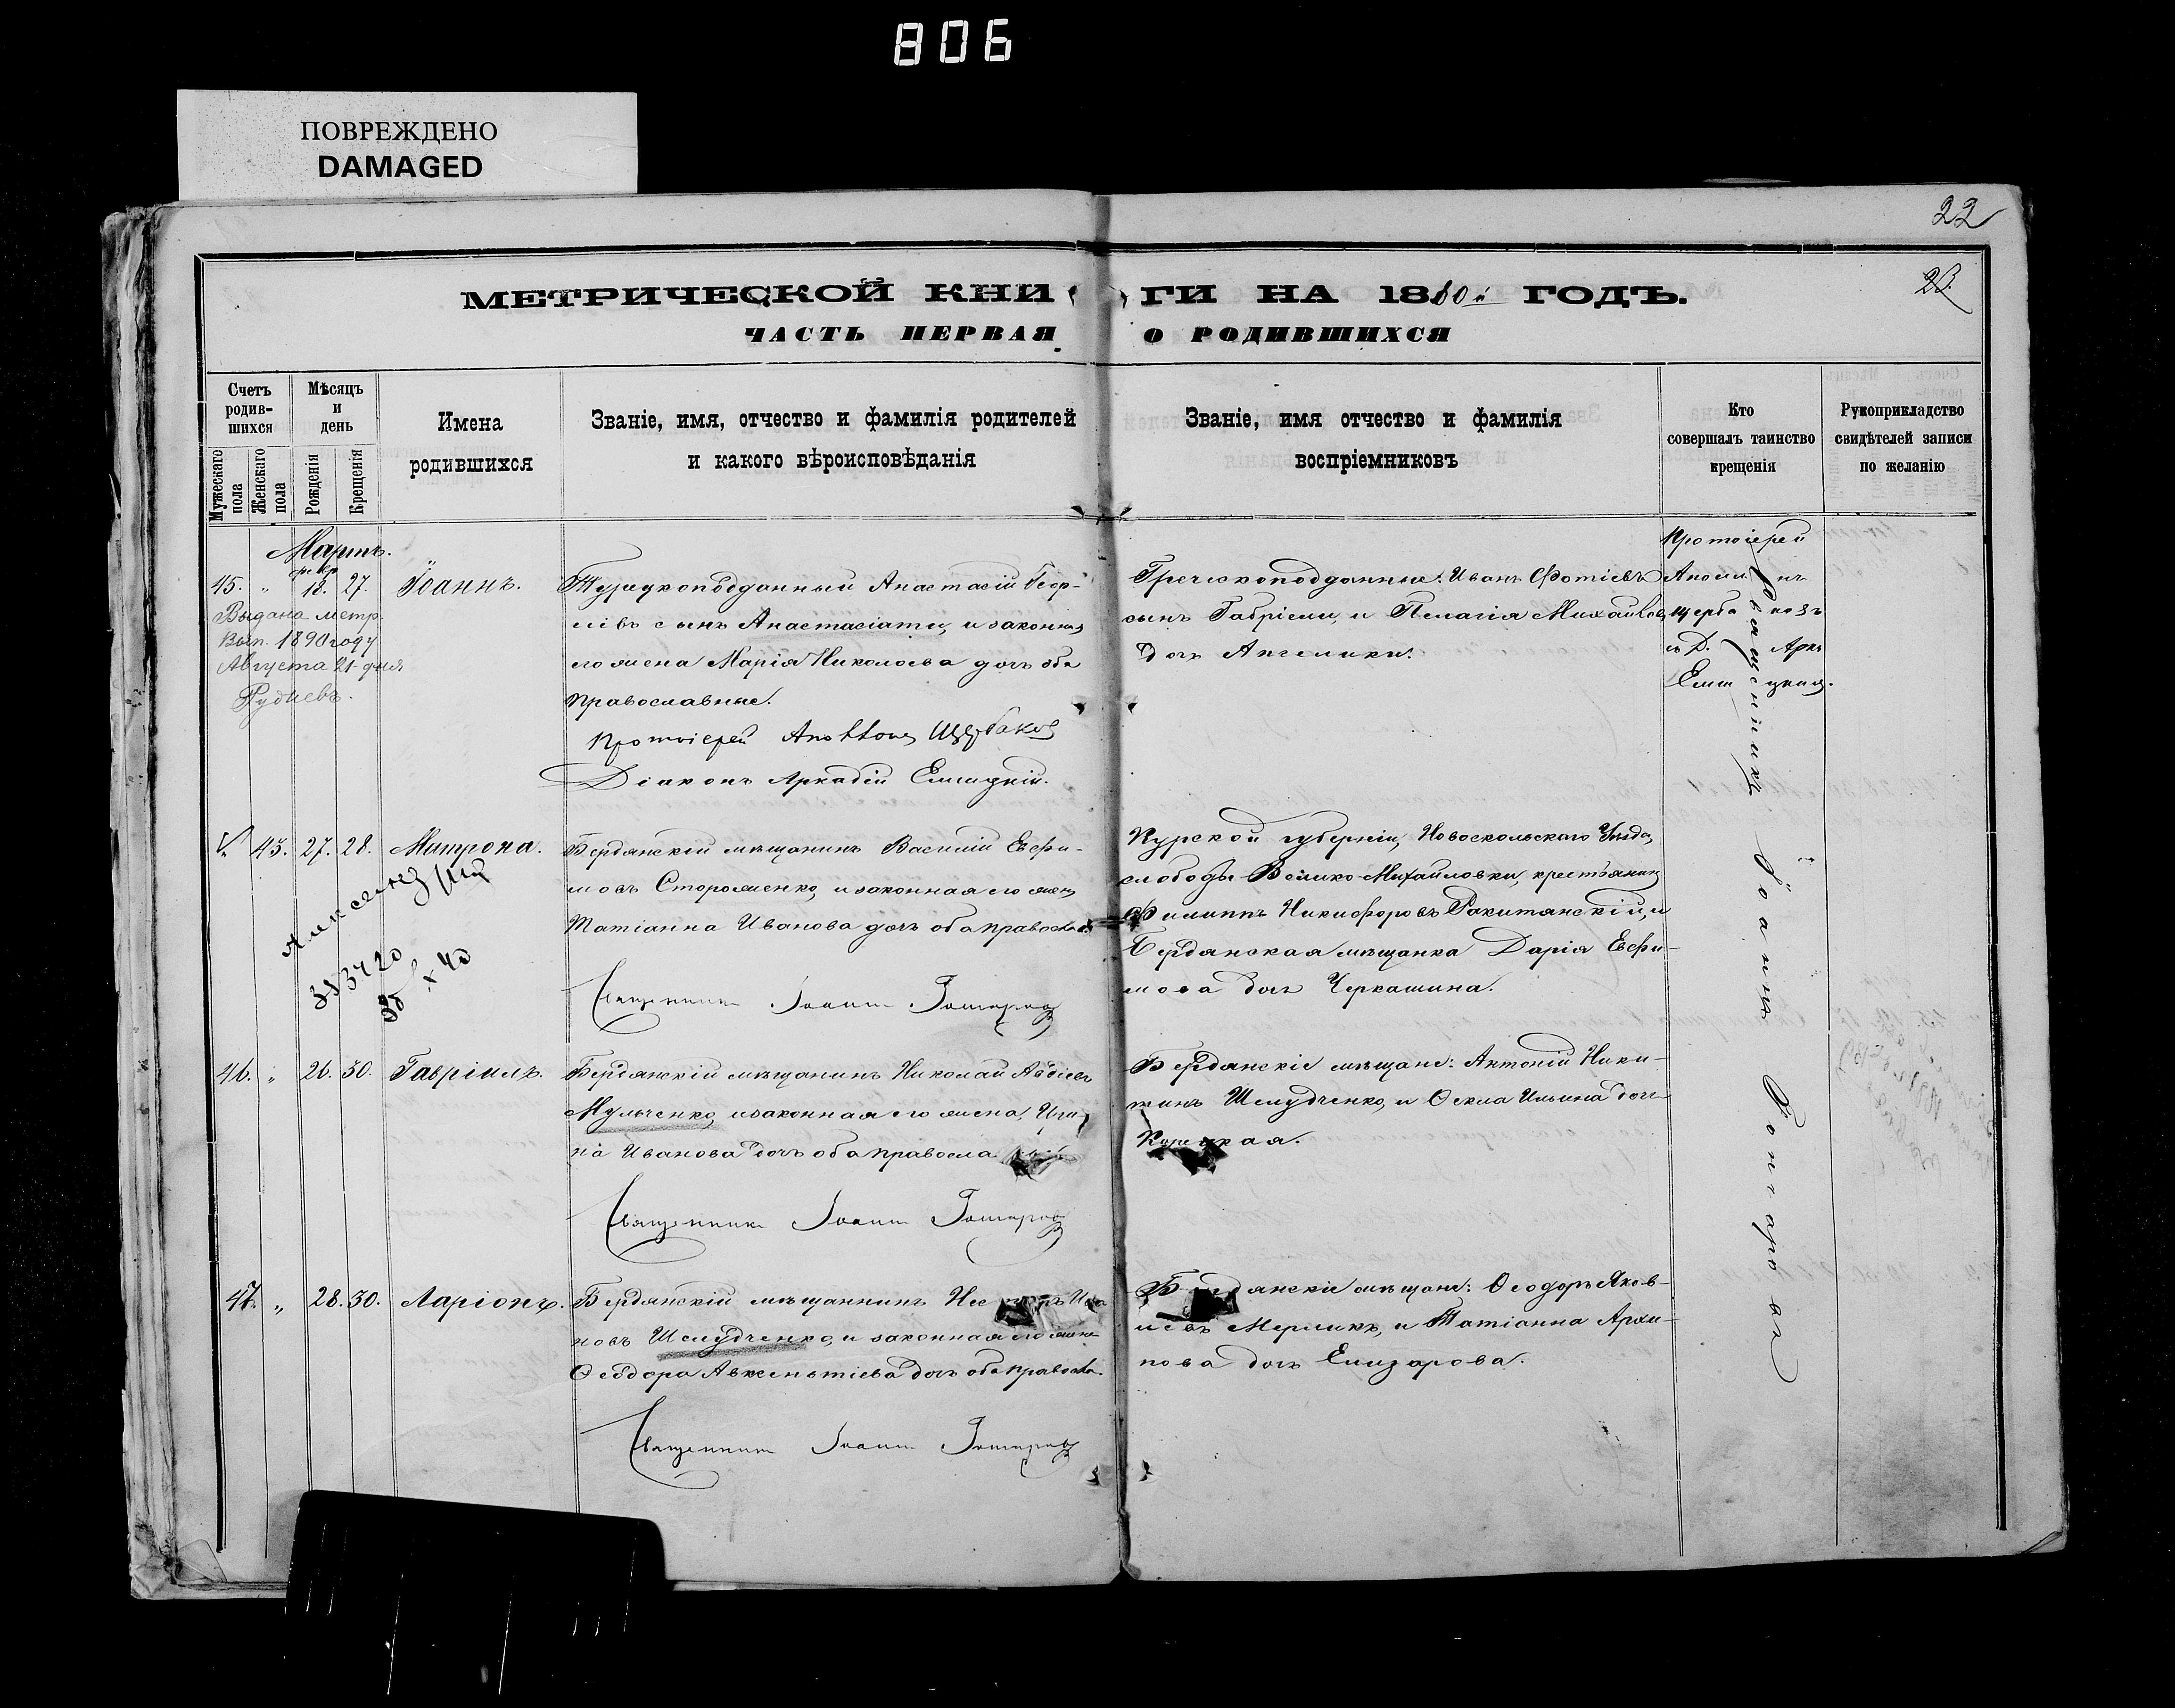 806
ПОВРЕЖДЕНО
DAMAGED
22
23.
МЕТРИЧЕСКОЙ КНИГИ НА 1880й ГОДЪ.
ЧАСТЬ ПЕРВАЯ О РОДИВШИХСЯ
Счетъ родив-шихся
Мужескаго пола
Женскаго пола
Мѣсяцъ и день
Рожденія
Крещенія
Имена родившихся
Званіе, имя, отчество и фамилія родителей
и какого вѣроисповѣданія
Званіе, имя отчество и фамилія
воспріемниковъ
Кто
совершалъ таинство
крещенія
Рукоприкладство
свидѣтелей записи
по желанію
Мартъ.
февр
45. " 18. 27. Іоаннъ.
Выдана метр.
Вып. 1890 году
Августа 21 дня
Турецкоподданный Анастасій Геор-
гіевъ сынъ Анастасіати, и законная
его жена Марія Николаева дочь оба
православные.
Протоіерей Щербаковъ
Діаконъ Аркадій Елищкій.
Греческоподданные: Иванъ Фотіевъ
сынъ Габріели, и Пелагія Михайлова
дочь Ангелики.
Протоіерей
Щербаковъ
съ Д. Арк.
" 43. 27. 28. Матрона.
Бердянскій мѣщанинъ Василій Евфи-
мовъ Стороженко, и законная его жена
Татіанна Иванова дочь оба православ.
Священникъ Іоаннъ Гончаровъ
Курской губерніи, Новоскольскаго Уѣзда,
слободы Велико-Михайловки, крестьянинъ
Филиппъ Никифоровъ Ракитянскій, и
Бердянская мѣщанка Дарія Евфи-
мова дочь Черкашина.
46. " 26. 30. Гавріилъ.
Бердянскій мѣщанинъ Николай Авдіевъ
Мульченко, и законная его жена, Ири-
на Иванова дочь оба правосла
Священникъ Іоаннъ Гончаровъ
Бердянскіе мѣщане: Антоній Ники-
тинъ Шелудченко, и Ѳекла Ильина дочь
47. " 28. 30. Ларіонъ.
Бердянскій мѣщанинъ Ива
новъ Шелудченко, и законная его жена
Ѳеодора Авксентіева дочь оба православ.
Священникъ Іоаннъ Гончаровъ
Бердянскіе мѣщане: Ѳеодоръ Яков-
левъ и Татіанна Архи-
пова дочь Елизарова.
Священникъ Іоаннъ Гончаровъ